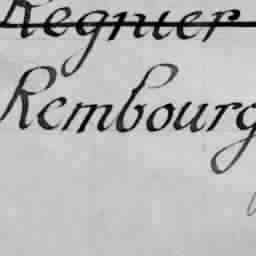 Regnier
Rembourg